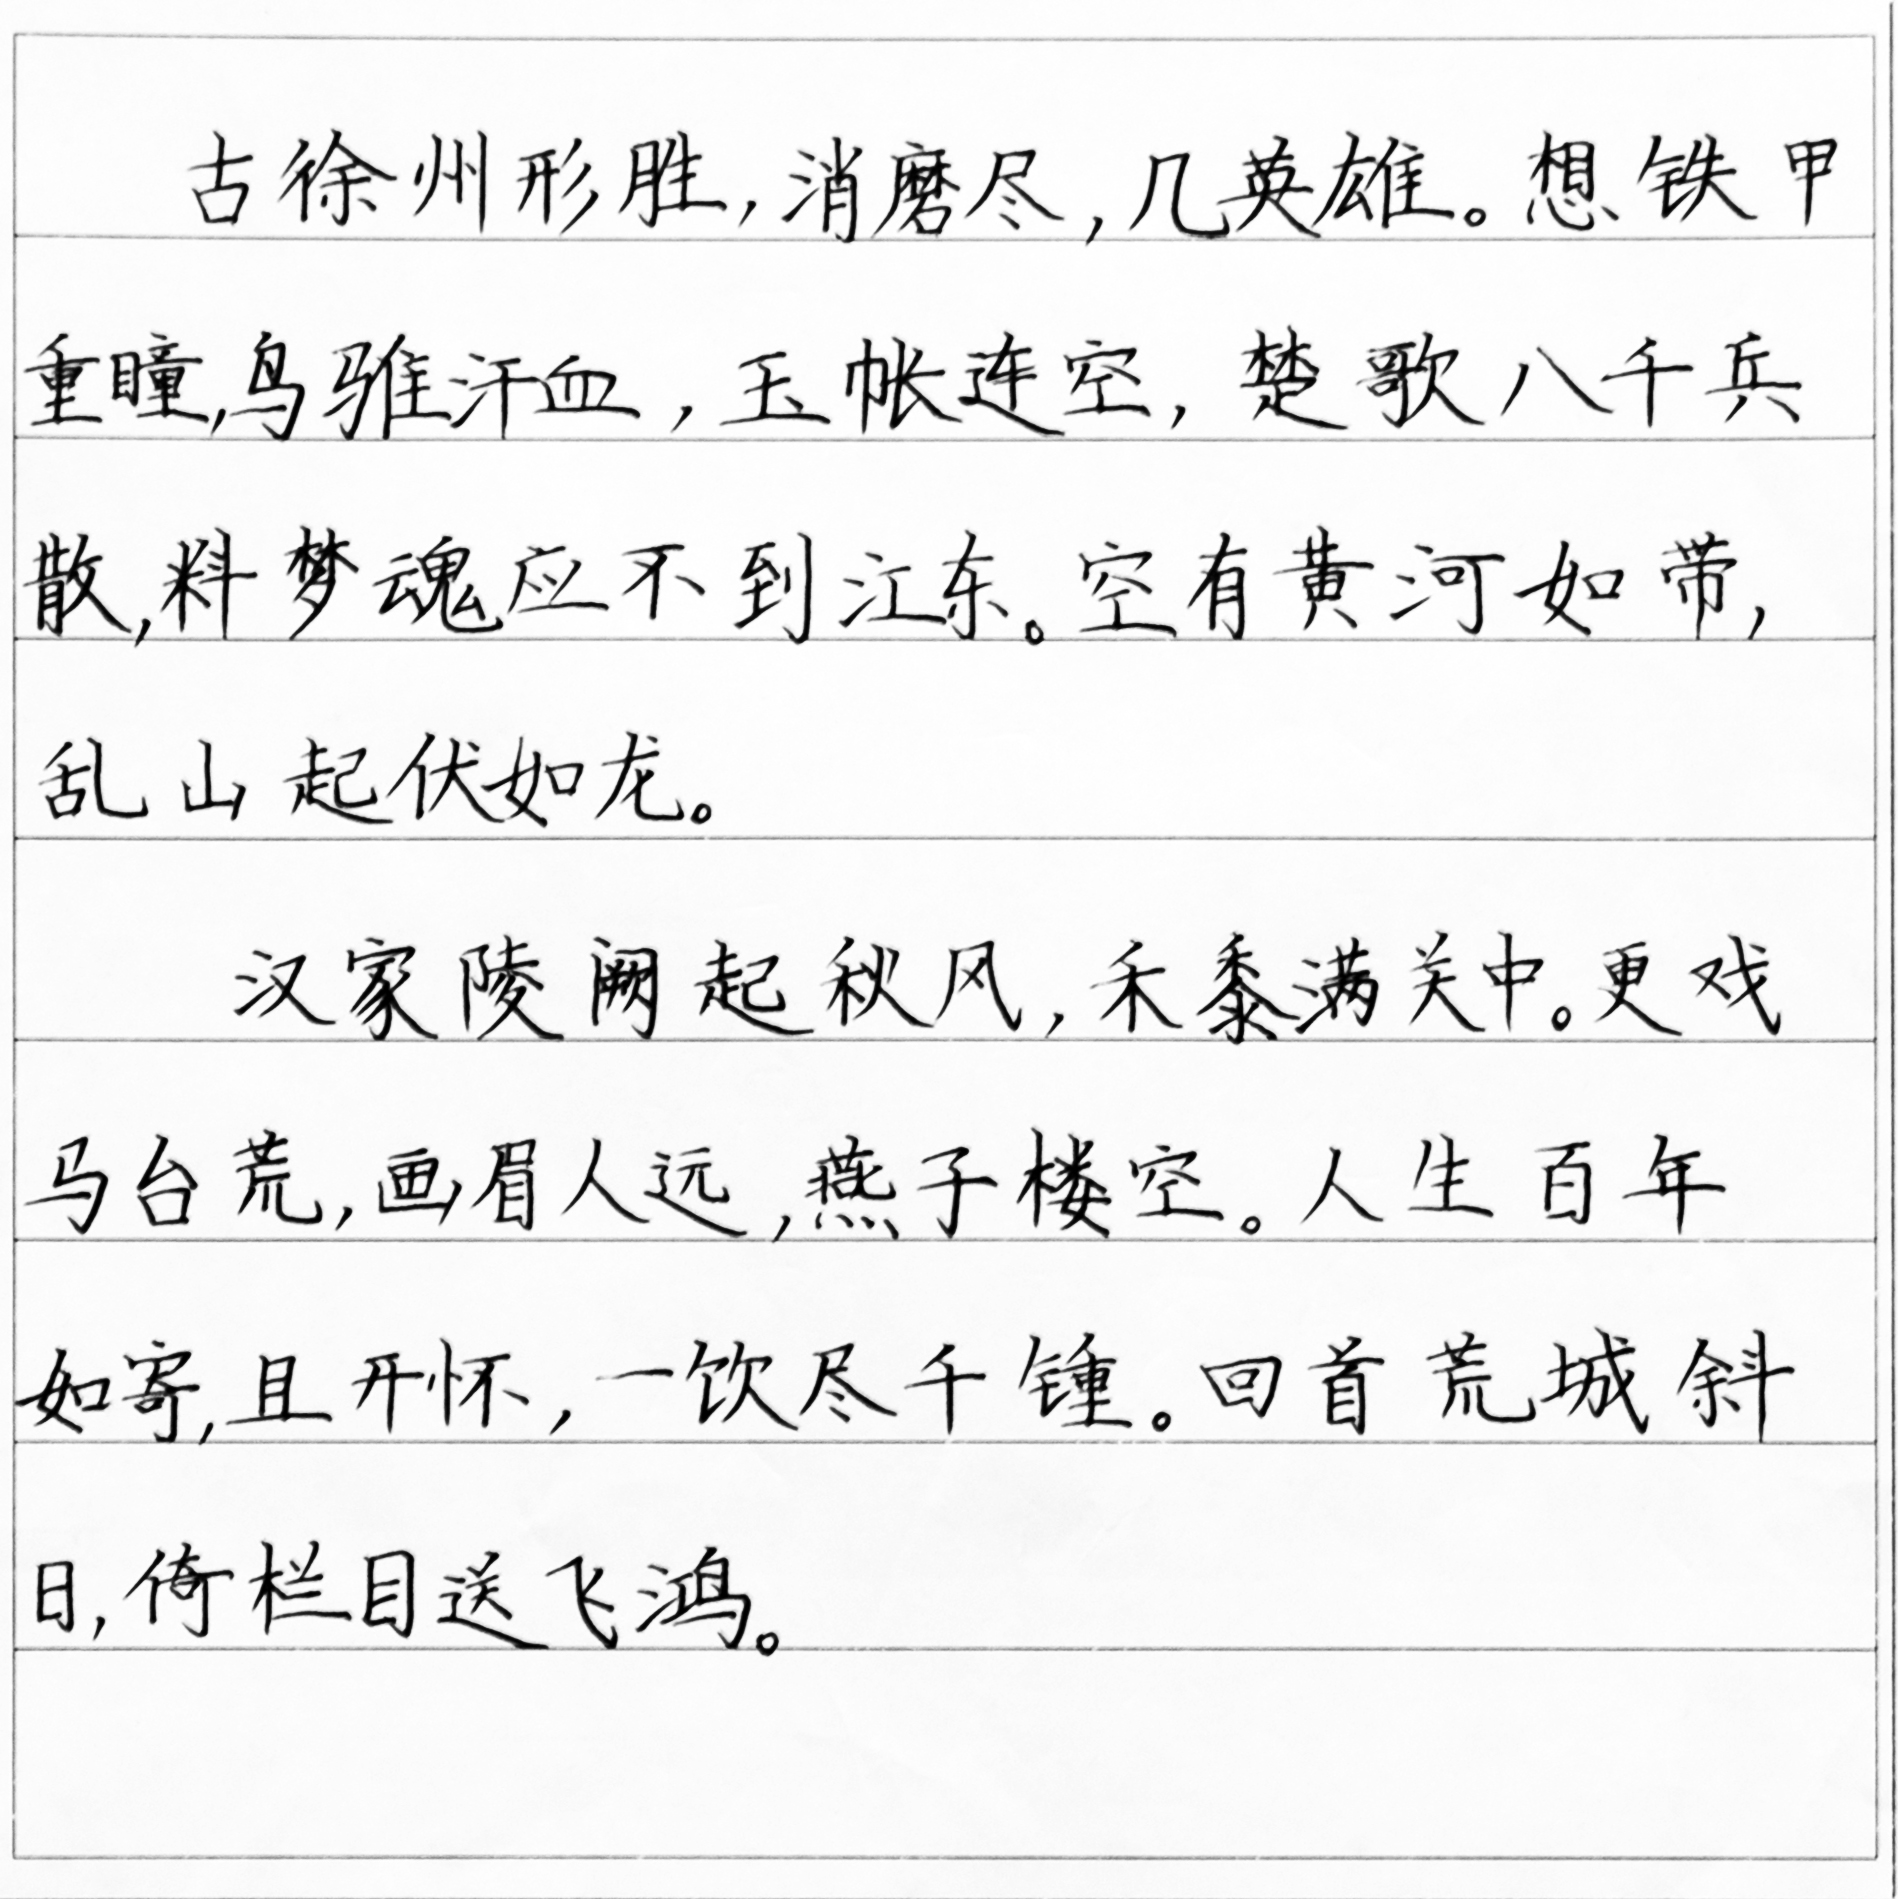 古徐州形胜,消磨尽,几英雄。想铁甲
重瞳,乌骓汗血,玉帐连空,楚歌八千兵
散,料梦魂应不到江东。空有黄河如带,
乱山起伏如龙。
汉家陵阙起秋风,禾黍满关中。更戏
马台荒,画眉人远,燕子楼空。人生百年
如寄,且开怀,一饮尽千锺。回首荒城斜
日,倚栏目送飞鸿。